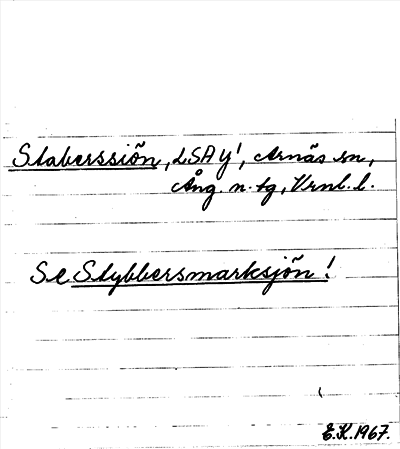 Staberssiön, LSA Y', Arnäs sn,
Ång. n. tg, Vrnl. l.
Se Stybbersmarksjön!
E.K. 1967.